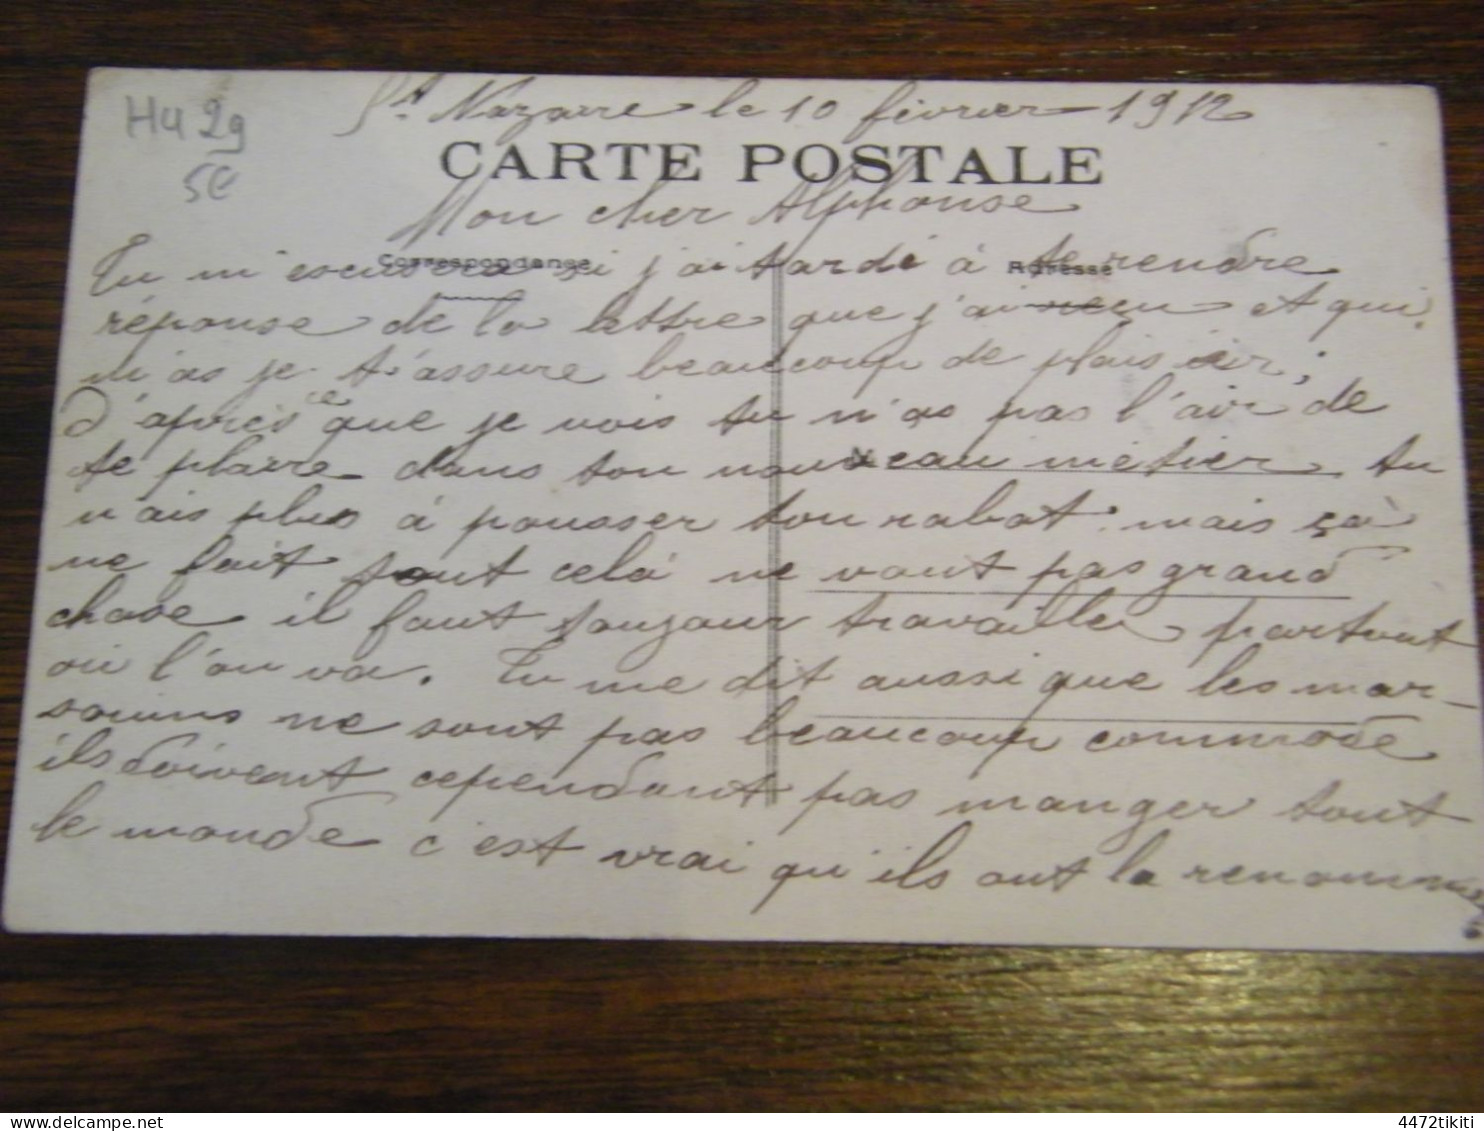 Hu 29
5€
St Nazaire le 10 février 1912
CARTE POSTALE
Mon cher Alphonse
Correspondance
Adresse
Tu m'escusera si j'ai tardé à te rendre
réponse de la lettre que j'ai reçu et qui
m'as je t'assure beaucoup de plaisir;
d'après ce que je vois tu n'as pas l'air de
te plaire dans ton nouveau métier tu
n'ais plus à pousser ton rabot mais ça
ne fait tout celà ne vaut pas grand
chose il faut toujour travailler partout
où l'on va. Tu me dit aussi que les mar-
souins ne sont pas beaucoup commode
ils doivent cependant pas manger tout
le monde c'est vrai qu'ils ont la renommé
4472tikiti